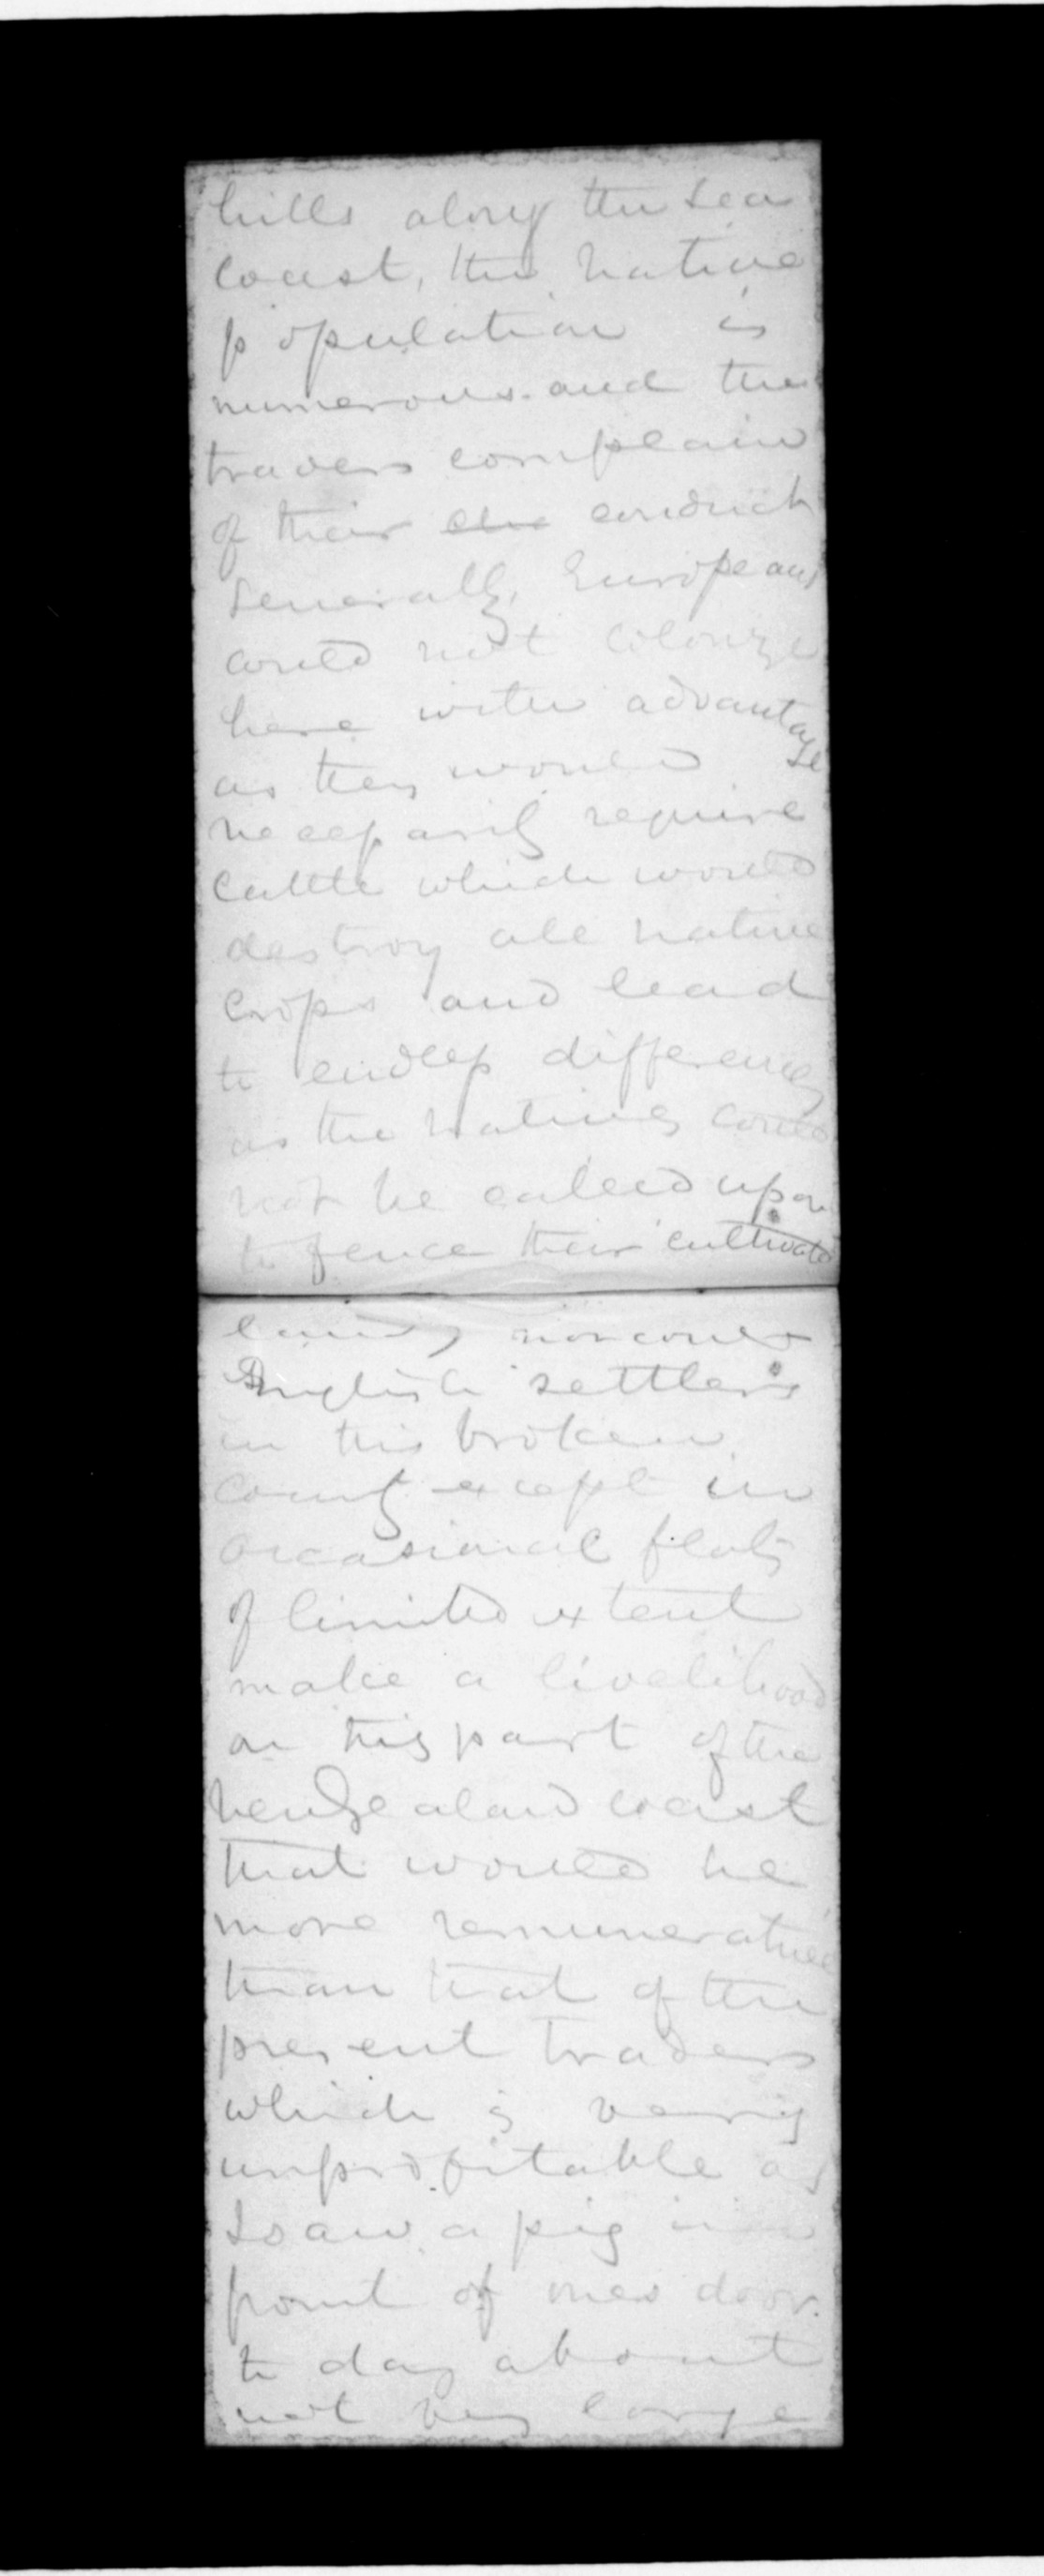 hills along the sea
coast, the native
population is
numerous. and the
traders complain
of their conduct
generally, Europeans
could not colonize
here with advantage
as they would
necessarily require
cattle which would
destroy all native
crops and lead
to endless differences
as the natives could
not be called upon
to fence their cultivated
lands, nor could
English settlers
in this broken
county except in
occasional flats
of limited extent
make a livelihood
on this part of the
New Zealand coast
that would be
more remunerative
than that of the
present traders
which is very
unprofitable as
I saw a pig in
front of ones door.
to day about
not very large